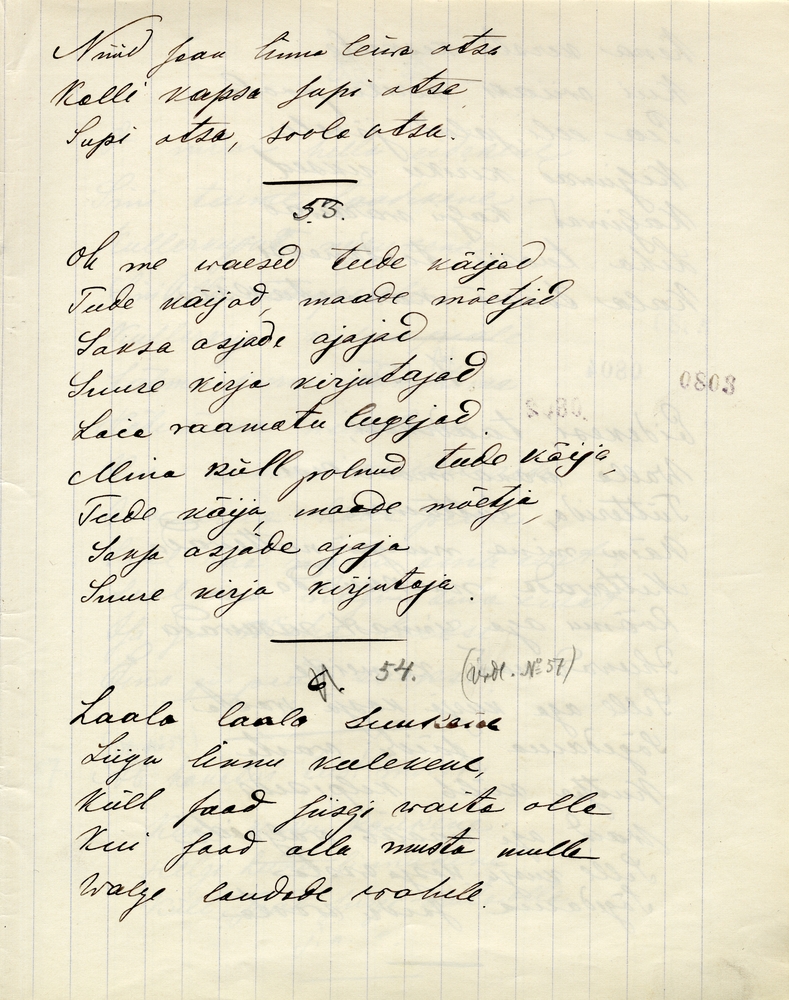 Nüüd saan linna leiva otsa
Kalli kapsa supi otsa
Supi otsa, soola otsa.
53.
Oh me waesed teede käijad,
Tede käijad, maade mõetjad
Saksa asjade ajajad
Suure kirja kirjutajad
Laia raamatu lugejad.
Mina küll polnud teede käija,
Teede käija, maade mõetja,
Saksa asjade ajaja
Suure kirja kirjutaja.
0803
54. (Vrdl. № 57)
Laala laala suukene
Liigu linnu keelekene,
Küll saad siisgi waita olla
Kui saad alla musta mulla
Walge laudade wahele.